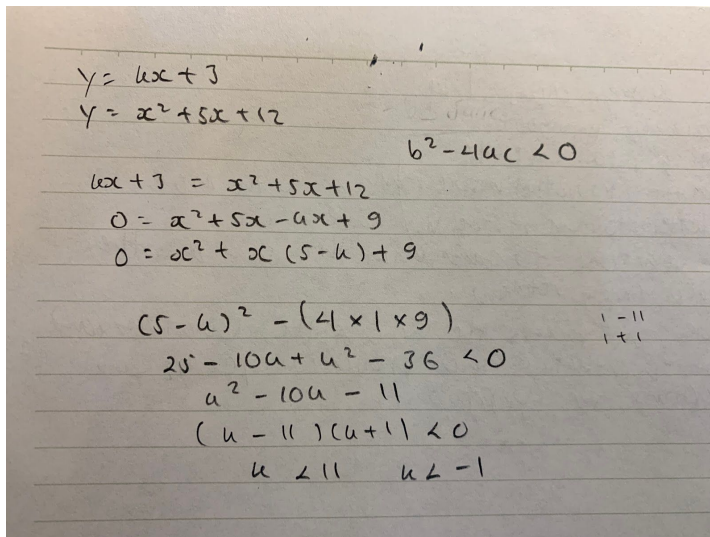 y = kx + 3
y = x² + 5x + 12
b² - 4ac < 0
kx + 3 = x² + 5x + 12
0 = x² + 5x - kx + 9
0 = x² + x (5 - k) + 9
(5 - k)² - (4 × 1 × 9)
1 - 11
1 + 1
25 - 10k + k² - 36 < 0
k² - 10k - 11
(k - 11)(k + 1) < 0
k < 11 k < -1